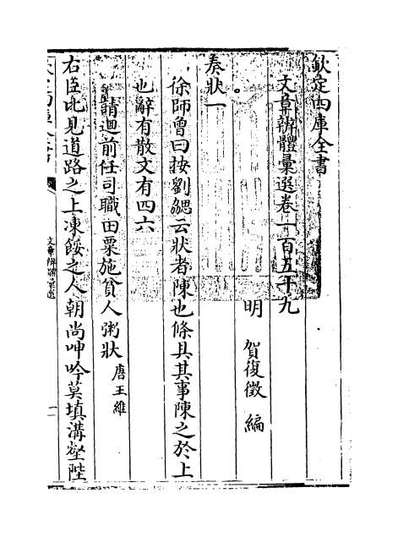 欽定四庫全書
文章辨體彙選卷一百五十九
明 賀復徵 編
奏狀一
徐師曾曰按劉勰云狀者陳也條具其事陳之於上
也辭有散文有四六
請迴前任司職田粟施貧人粥狀 唐王維
右臣比見道路之上凍餒之人朝尚呻吟莫填溝壑陛